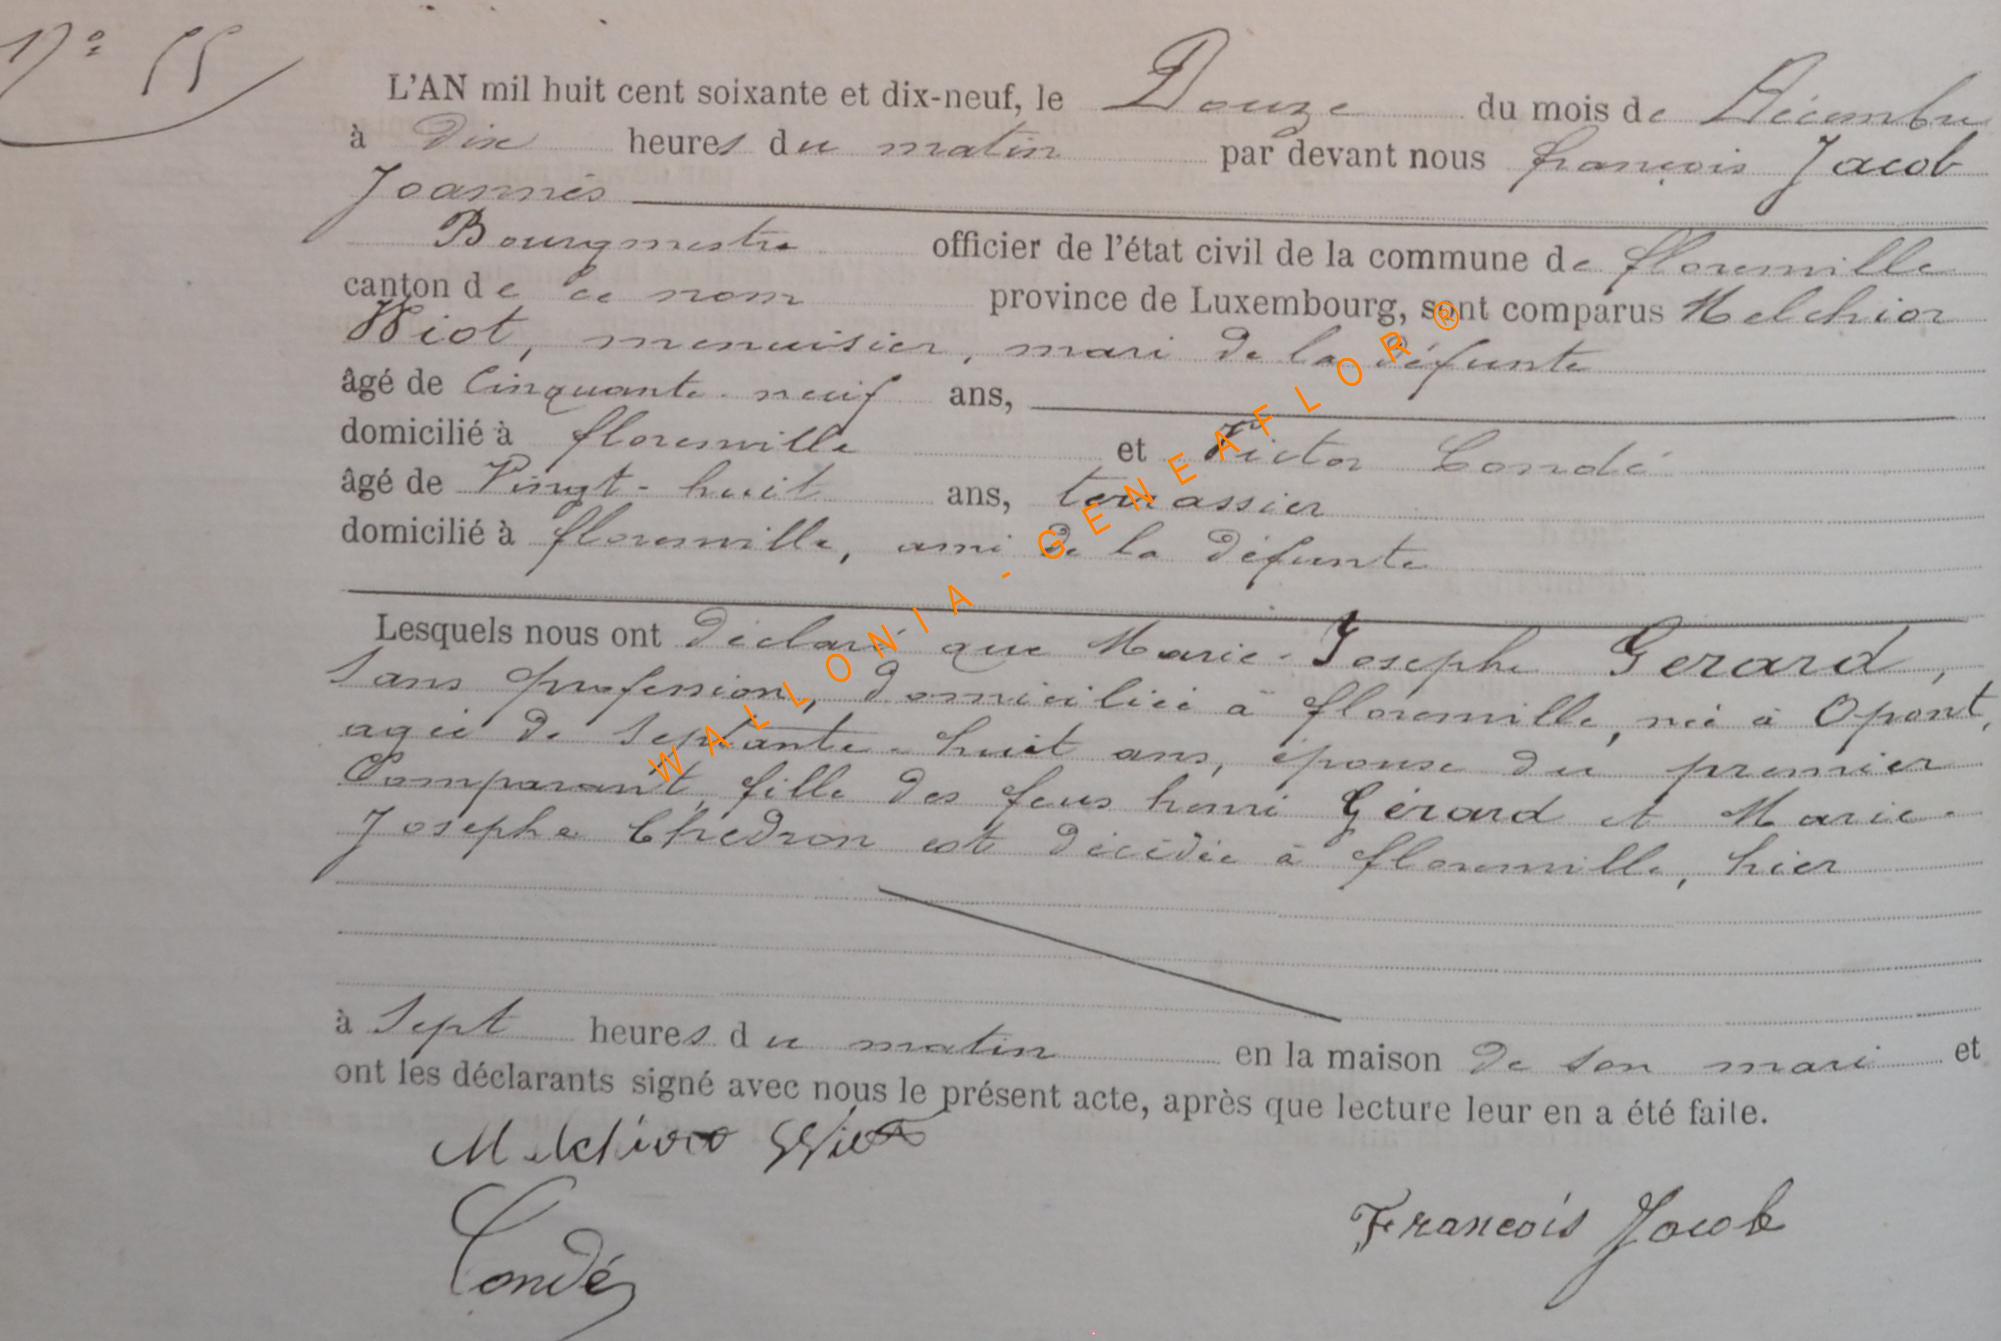 N° 55
L'AN mil huit cent soixante et dix-neuf, le Douze du mois de Décembre
à Dix heures du matin par devant nous françois Jacob
Joannès
Bourgmestre officier de l'état civil de la commune de florenville
canton de ce nom province de Luxembourg, sont comparus Melchior
Wiot, menuisier, mari de la défunte
âgé de Cinquante-neuf ans,
domicilié à florenville et Victor Condé
âgé de Vingt-huit ans, terrassier
domicilié à florenville, ami de la défunte
Lesquels nous ont déclaré que Marie-Josephe Gerard,
sans profession, domiciliée à florenville, née à Opont,
agée de septante-huit ans, épouse du premier
Comparant, fille des feus henri Gérard et Marie-
Josephe Chedron est décédée à florenville, hier
à sept heures du matin en la maison de son mari et
ont les déclarants signé avec nous le présent acte, après que lecture leur en a été faite.
Melchior Wiot
Condé
François Jacob
WALLONIA-GENEAFLOR®